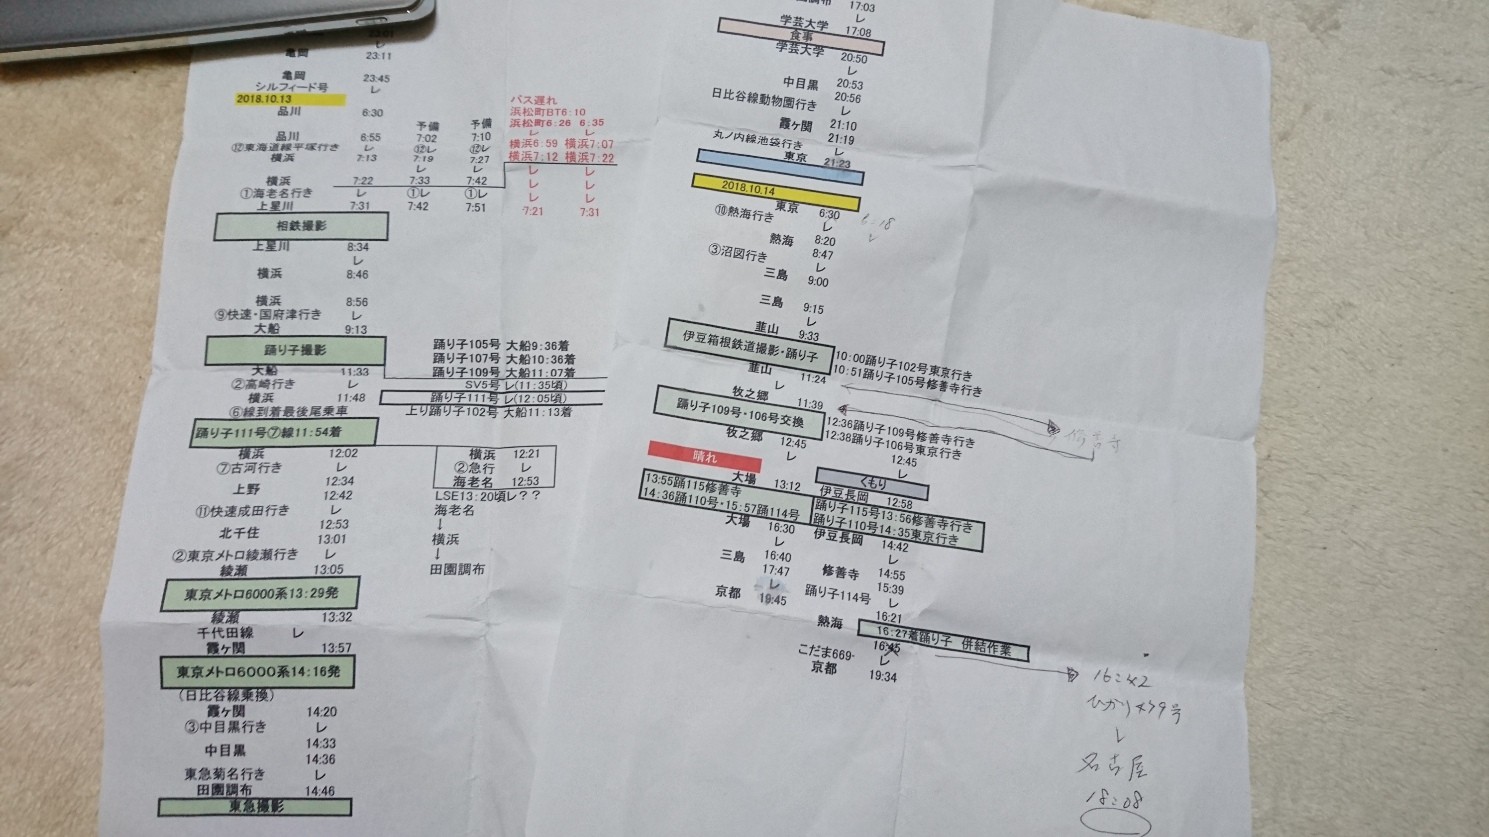 23:01
レ
亀岡 23:11
亀岡 23:45
シルフィード号 レ
2018.10.13
品川 6:30
予備 予備
品川 6:55 7:02 7:10
⑫東海道線平塚行き レ ⑫レ ⑫レ
横浜 7:13 7:19 7:27
レ レ
横浜 7:22 7:33 7:42
①海老名行き レ ①レ ①レ
上星川 7:31 7:42 7:51
バス遅れ
浜松町BT6:10
浜松町6:26 6:35
レ レ
横浜6:59 横浜7:07
横浜7:12 横浜7:22
レ レ
レ レ
レ レ
7:21 7:31
相鉄撮影
上星川 8:34
レ
横浜 8:46
横浜 8:56
⑨快速・国府津行き レ
大船 9:13
踊り子撮影
踊り子105号 大船9:36着
踊り子107号 大船10:36着
踊り子109号 大船11:07着
大船 11:33
SV5号 レ(11:35頃)
②高崎行き レ
踊り子111号 レ(12:05頃)
横浜 11:48
上り踊り子102号 大船11:13着
⑥線到着最後尾乗車
踊り子111号⑦線11:54着
横浜 12:02
⑦古河行き レ
上野 12:34
12:42
⑪快速成田行き レ
北千住 12:53
13:01
②東京メトロ綾瀬行き レ
綾瀬 13:05
横浜 12:21
②急行 レ
海老名 12:53
LSE13:20頃レ??
海老名
↓
横浜
↓
田園調布
東京メトロ6000系13:29発
綾瀬 13:32
千代田線 レ
霞ヶ関 13:57
東京メトロ6000系14:16発
(日比谷線乗換)
霞ヶ関 14:20
③中目黒行き レ
中目黒 14:33
14:36
東急菊名行き レ
田園調布 14:46
東急撮影
調布 17:03
レ
学芸大学 17:08
食事
学芸大学 20:50
レ
中目黒 20:53
日比谷線動物園行き 20:56
レ
霞ヶ関 21:10
21:19
丸ノ内線池袋行き レ
東京 21:23
2018.10.14
東京 6:30
6:18
⑩熱海行き レ
レ
熱海 8:20
8:47
③沼図行き レ
三島 9:00
三島 9:15
レ
韮山 9:33
伊豆箱根鉄道撮影・踊り子
10:00踊り子102号東京行き
10:51踊り子105号修善寺行き
韮山 11:24
レ
牧之郷 11:39
踊り子109号・106号交換
12:36踊り子109号修善寺行き
12:38踊り子106号東京行き
修善寺
牧之郷 12:45
レ
12:45
レ
晴れ
くもり
大場 13:12
伊豆長岡 12:58
13:55踊115修善寺
14:36踊110号・15:57踊114号
踊り子115号13:56修善寺行き
踊り子110号14:35東京行き
大場 16:30
レ
三島 16:40
17:47
レ
京都 19:45
伊豆長岡 14:42
レ
修善寺 14:55
15:39
踊り子114号 レ
熱海 16:21
16:27着踊り子 併結作業
16:45
こだま669- レ
京都 19:34
16:42
ひかり479号
レ
名古屋
18:08